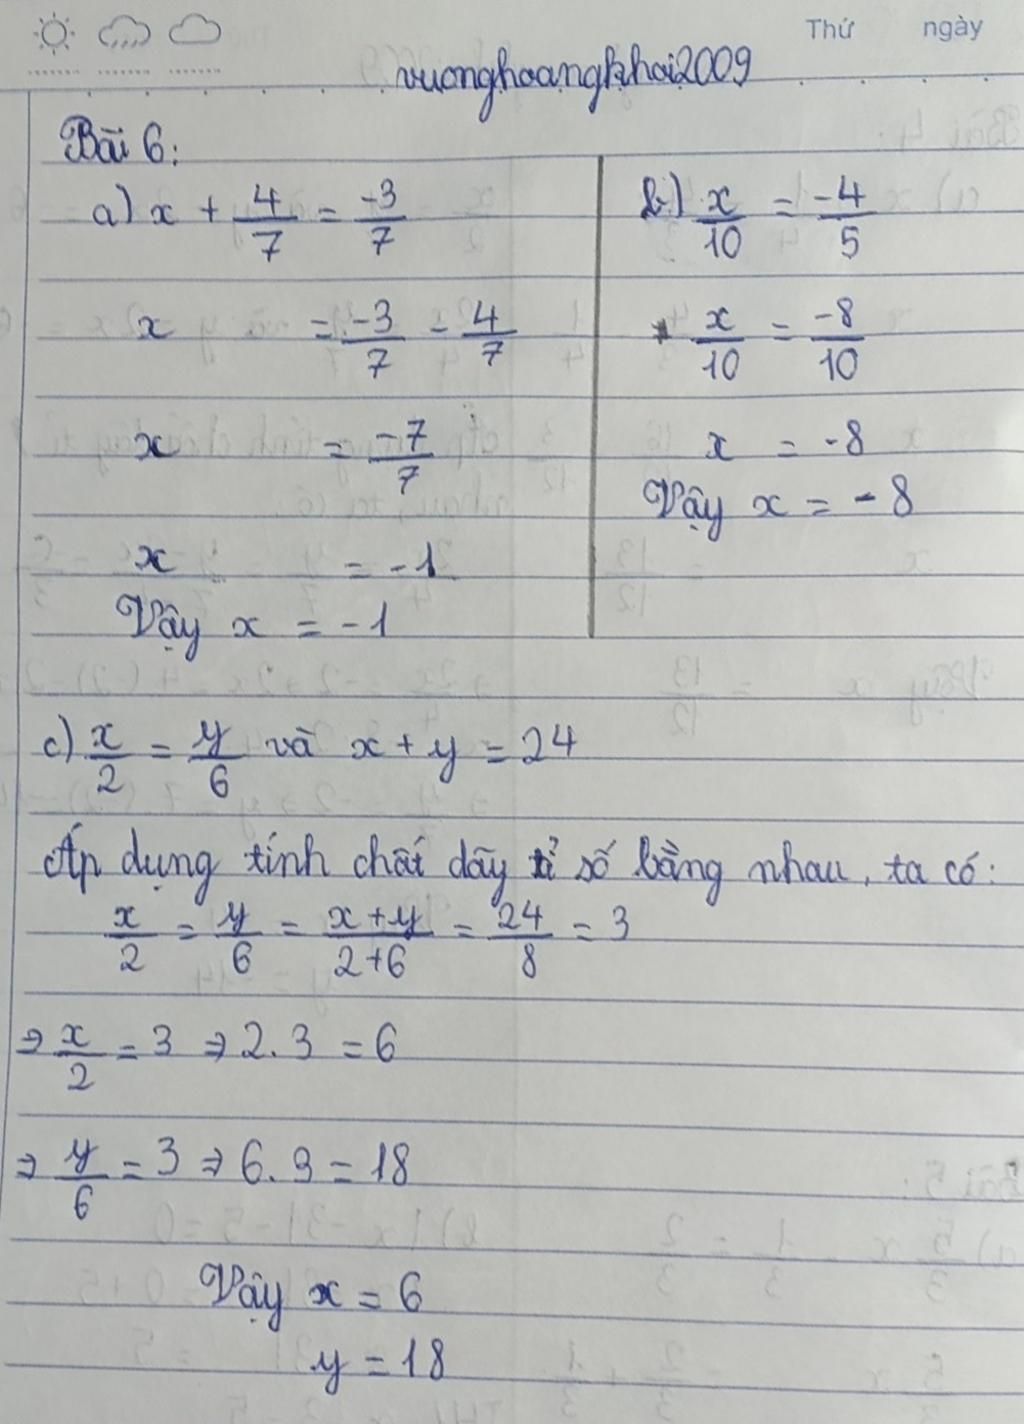 Thứ ngày
vuonghoangkhai2009
Bài 6:
a) x + 4/7 = -3/7
x = -3/7 - 4/7
x = -7/7
x = -1
Vậy x = -1
b) x/10 = -4/5
x/10 = -8/10
x = -8
Vậy x = -8
c) x/2 = y/6 và x + y = 24
Áp dụng tính chất dãy tỉ số bằng nhau, ta có:
x/2 = y/6 = x+y/2+6 = 24/8 = 3
⇒ x/2 = 3 ⇒ 2.3 = 6
⇒ y/6 = 3 ⇒ 6.3 = 18
Vậy x = 6
y = 18